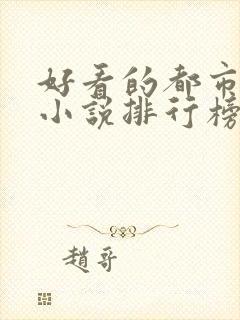 好看的都市
小説排行榜
趙哥